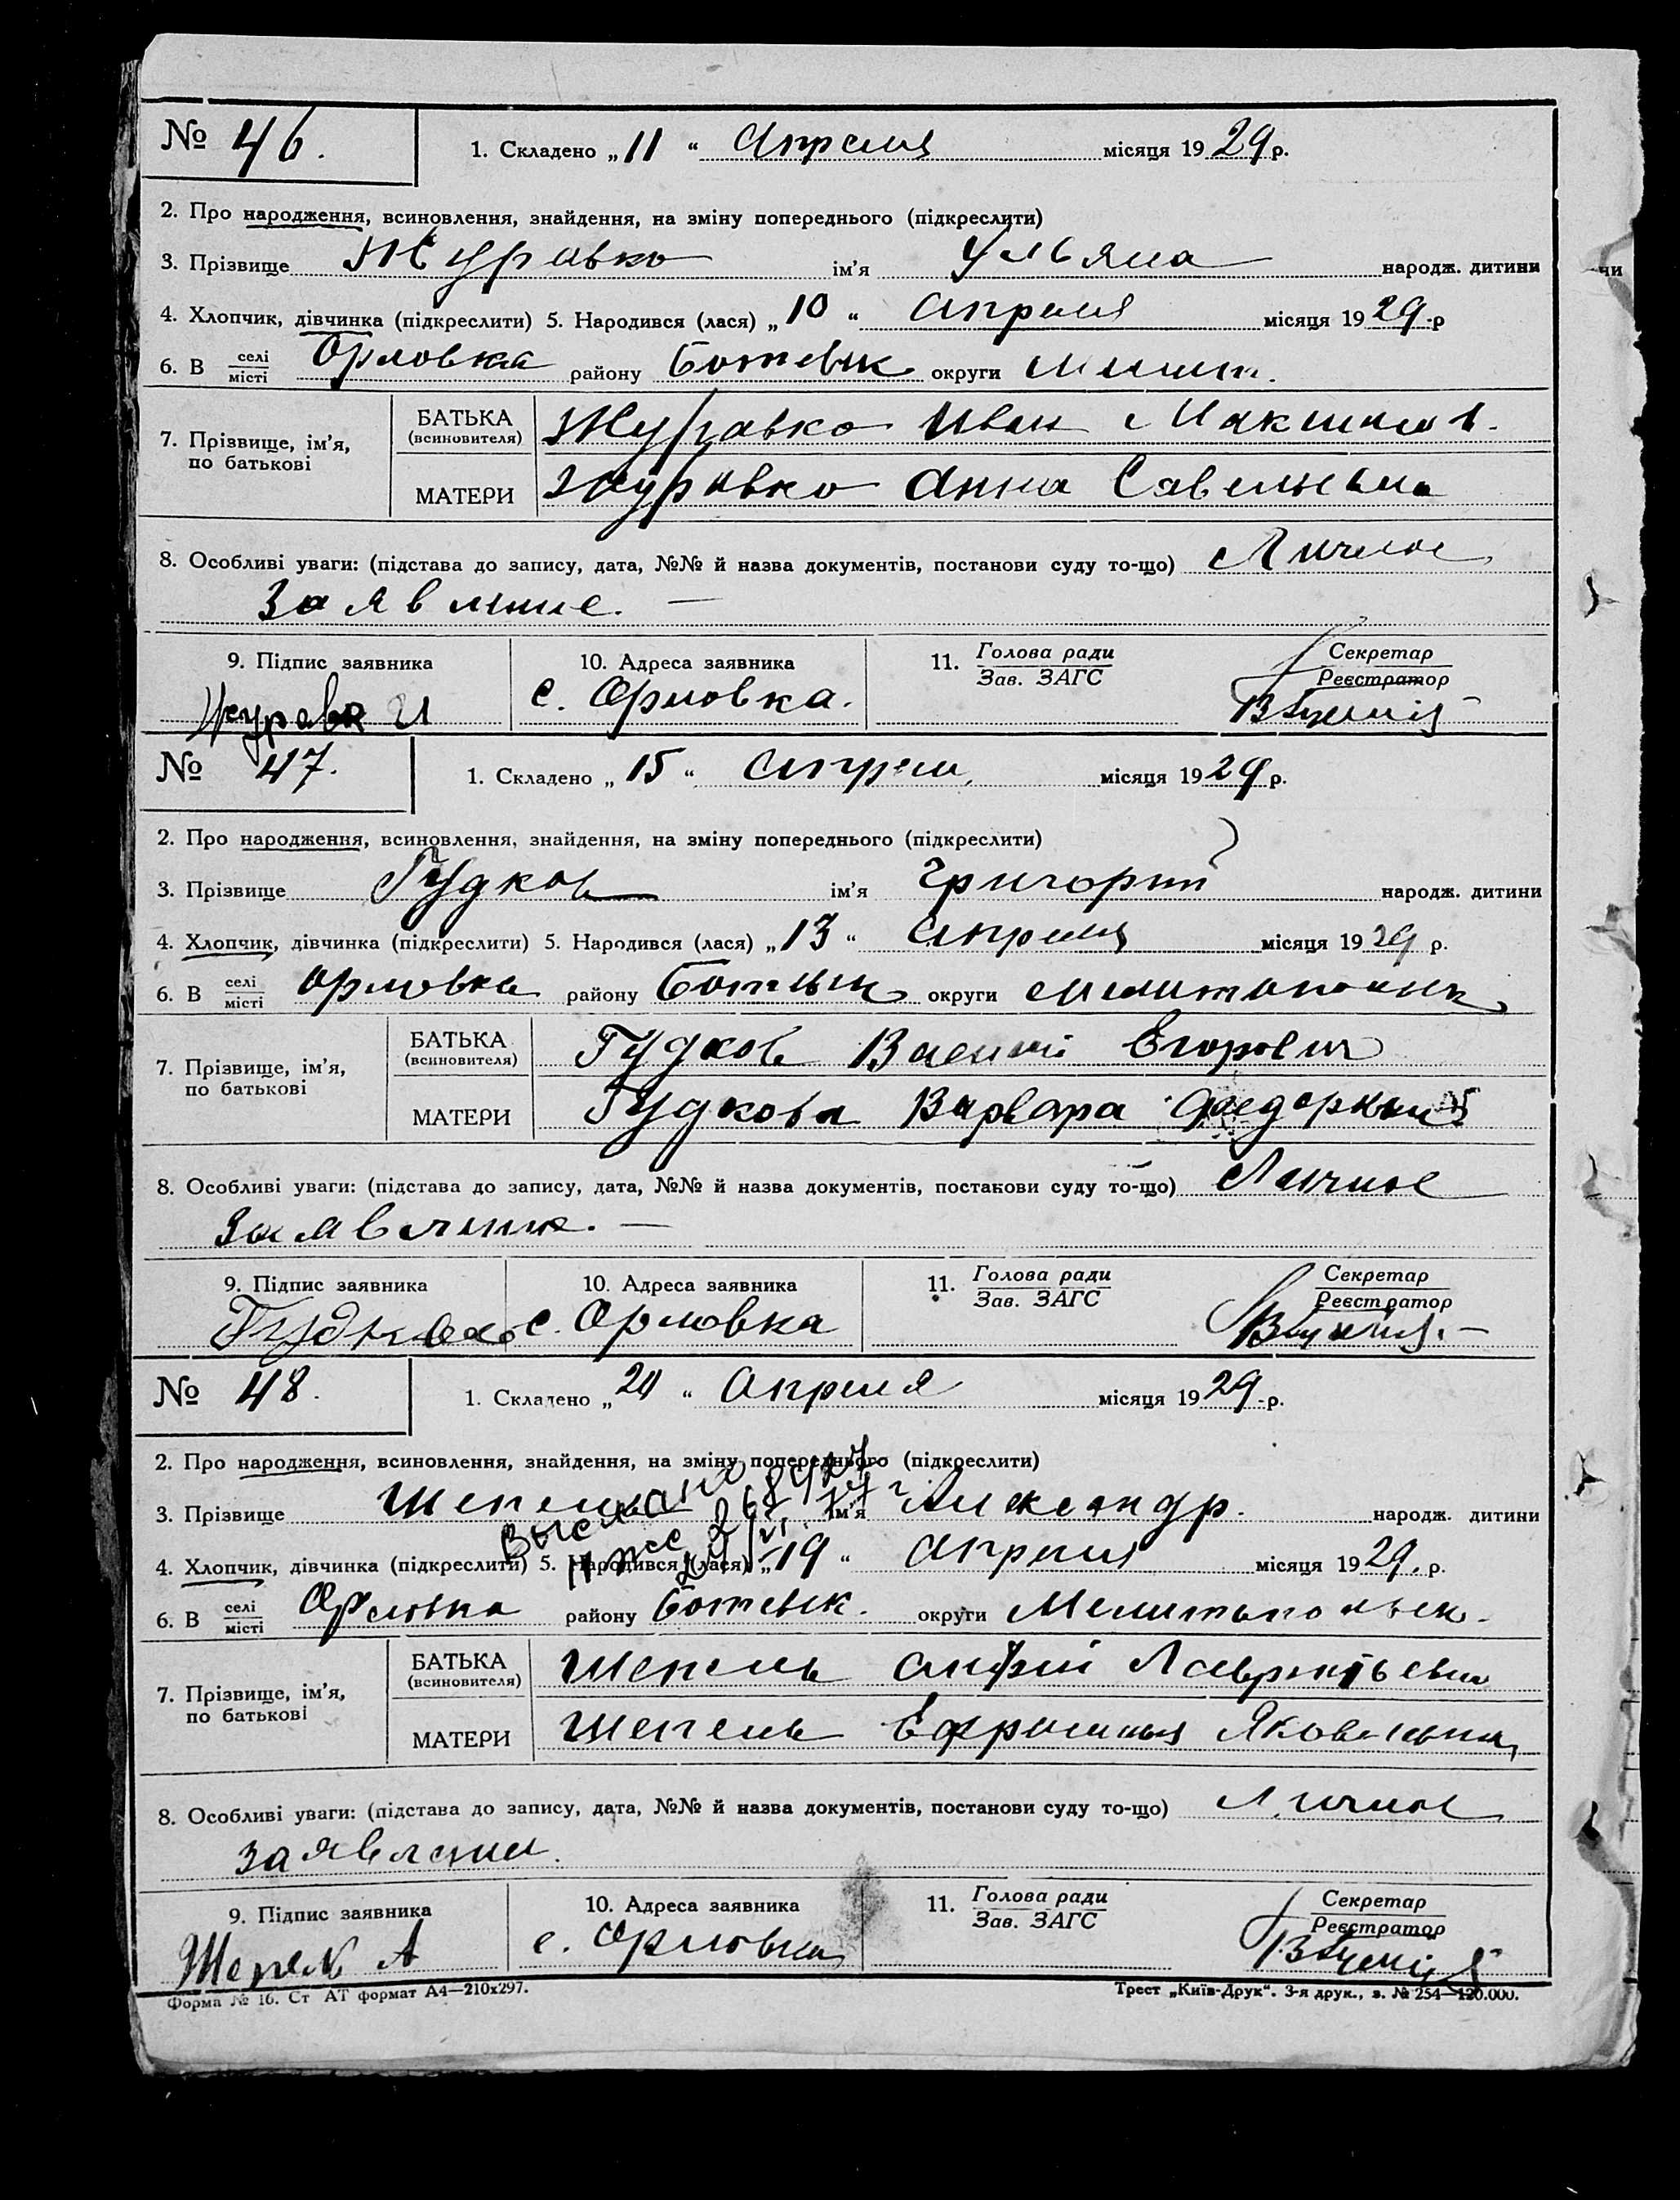 № 46. 1. Складено „11“ Апреля місяця 1929 р.
2. Про народження, всиновлення, знайдення, на зміну попереднього (підкреслити)
3. Прізвище Журавко ім'я Ульяна народж. дитини
4. Хлопчик, дівчинка (підкреслити) 5. Народився (лася) „10“ Апреля місяця 1929 р
6. В селі місті Орловка району Ботевск округи Мелит.
7. Прізвище, ім'я, по батькові БАТЬКА (всиновителя) Журавко Иван Максимов.
МАТЕРИ Журавко Анна Савельевна
8. Особливі уваги: (підстава до запису, дата, №№ й назва документів, постанови суду то-що) Личное
заявление. —
9. Підпис заявника 10. Адреса заявника 11. Голова ради Зав. ЗАГС Секретар Реєстратор
Журавка И с. Орловка.
№ 47. 1. Складено „15“ Апрел місяця 1929 р.
2. Про народження, всиновлення, знайдення, на зміну попереднього (підкреслити)
3. Прізвище Гудков ім'я Григорий народж. дитини
4. Хлопчик, дівчинка (підкреслити) 5. Народився (лася) „13“ Апреля місяця 1929 р.
6. В селі місті Орловка району Ботевск округи Мелитопольск
7. Прізвище, ім'я, по батькові БАТЬКА (всиновителя) Гудков Василий Егорович
МАТЕРИ Гудкова Варвара
8. Особливі уваги: (підстава до запису, дата, №№ й назва документів, постанови суду то-що) Личное
заявление. —
9. Підпис заявника 10. Адреса заявника 11. Голова ради Зав. ЗАГС Секретар Реєстратор
Гудков с. Орловка
№ 48. 1. Складено „24“ Апреля місяця 1929 р.
2. Про народження, всиновлення, знайдення, на зміну попереднього (підкреслити)
3. Прізвище Шепель ім'я Александр. народж. дитини
Выслано
4. Хлопчик, дівчинка (підкреслити) 5. Народився (лася) „19“ Апреля місяця 1929. р.
6. В селі місті Орловка району Ботевск. округи Мелитопольск.
7. Прізвище, ім'я, по батькові БАТЬКА (всиновителя) Шепель
МАТЕРИ Шепель Ефросинья Яковлевна
8. Особливі уваги: (підстава до запису, дата, №№ й назва документів, постанови суду то-що) Личное
заявление.
9. Підпис заявника 10. Адреса заявника 11. Голова ради Зав. ЗАГС Секретар Реєстратор
Шепель А с. Орловка
Форма № 16. Ст АТ формат А4—210х297. Трест „Київ-Друк“. 3-я друк., з. № 254—120.000.